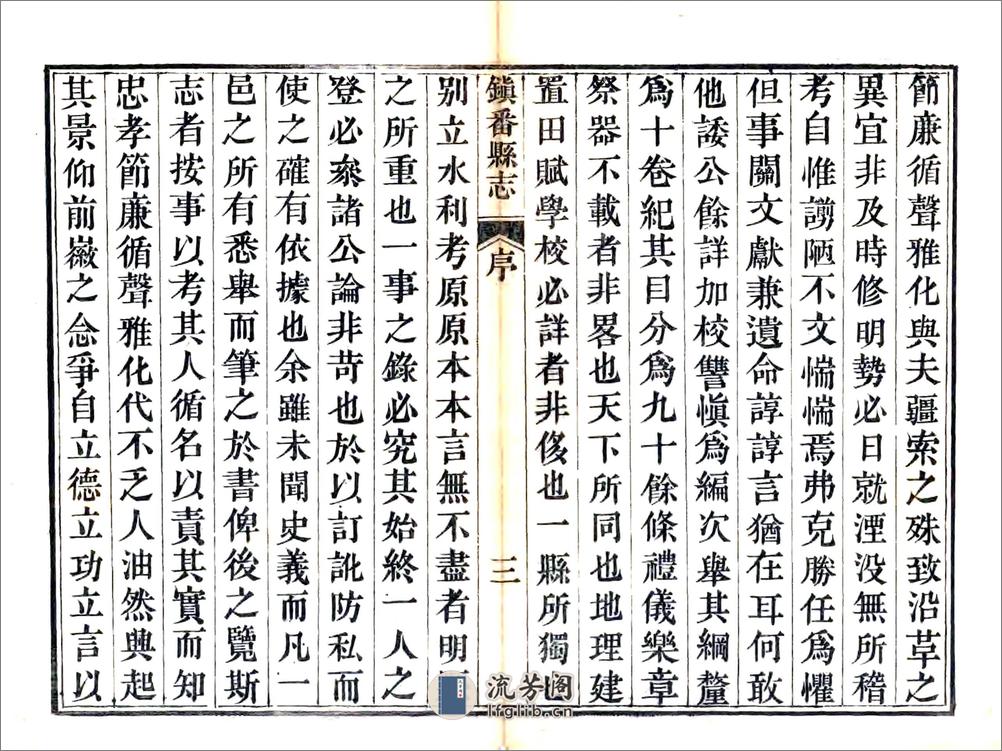 節廉循聲雅化與夫疆索之殊致沿革之
異宜非及時修明勢必日就湮没無所稽
考自惟譾陋不文惴惴焉弗克勝任爲懼
但事關文獻兼遺命諄諄言猶在耳何敢
他諉公餘詳加校讐愼爲編次舉其綱釐
爲十卷紀其目分爲九十餘條禮儀樂章
祭器不載者非畧也天下所同也地理建
置田賦學校必詳者非侈也一縣所獨也
鎭番縣志
序
三
别立水利考原原本本言無不盡者明
之所重也一事之錄必究其始終一人之
登必叅諸公論非苛也於以訂訛防私而
使之確有依據也余雖未聞史義而凡一
邑之所有悉舉而筆之於書俾後之覽斯
志者按事以考其人循名以責其實而知
忠孝節廉循聲雅化代不乏人油然興起
其景仰前徽之念爭自立德立功立言以
流芳阁
lfglib.cn